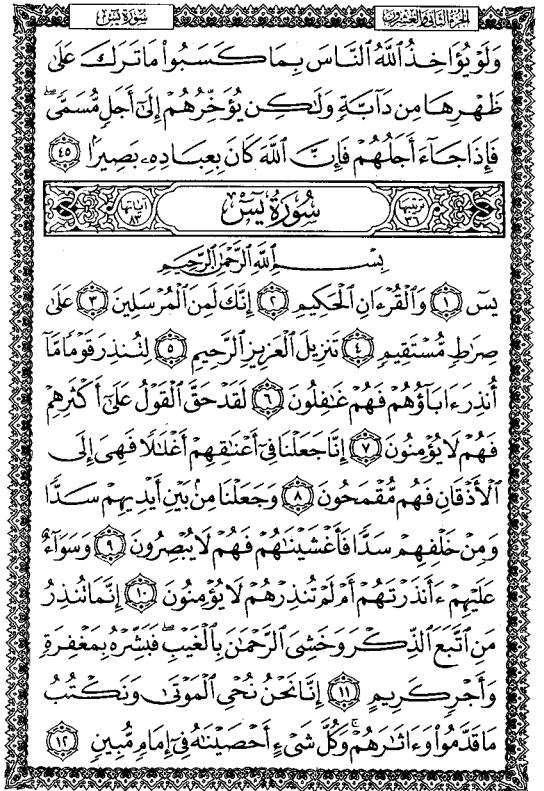 الجزء الثاني والعشرون
سورة يس
وَلَوْ يُؤَاخِذُ ٱللَّهُ ٱلنَّاسَ بِمَا كَسَبُوا۟ مَا تَرَكَ عَلَىٰ
ظَهْرِهَا مِن دَآبَّةٍ وَلَٰكِن يُؤَخِّرُهُمْ إِلَىٰٓ أَجَلٍ مُّسَمًّى ۖ
فَإِذَا جَآءَ أَجَلُهُمْ فَإِنَّ ٱللَّهَ كَانَ بِعِبَادِهِۦ بَصِيرًۢا ٤٥
ترتيبها ٣٦ سُورَةُ يسٓ آياتها ٨٣
بِسْمِ ٱللَّهِ ٱلرَّحْمَٰنِ ٱلرَّحِيمِ
يسٓ ١ وَٱلْقُرْءَانِ ٱلْحَكِيمِ ٢ إِنَّكَ لَمِنَ ٱلْمُرْسَلِينَ ٣ عَلَىٰ
صِرَٰطٍ مُّسْتَقِيمٍ ٤ تَنزِيلَ ٱلْعَزِيزِ ٱلرَّحِيمِ ٥ لِتُنذِرَ قَوْمًا مَّآ
أُنذِرَ ءَابَآؤُهُمْ فَهُمْ غَٰفِلُونَ ٦ لَقَدْ حَقَّ ٱلْقَوْلُ عَلَىٰٓ أَكْثَرِهِمْ
فَهُمْ لَا يُؤْمِنُونَ ٧ إِنَّا جَعَلْنَا فِىٓ أَعْنَٰقِهِمْ أَغْلَٰلًا فَهِىَ إِلَى
ٱلْأَذْقَانِ فَهُم مُّقْمَحُونَ ٨ وَجَعَلْنَا مِنۢ بَيْنِ أَيْدِيهِمْ سَدًّا
وَمِنْ خَلْفِهِمْ سَدًّا فَأَغْشَيْنَٰهُمْ فَهُمْ لَا يُبْصِرُونَ ٩ وَسَوَآءٌ
عَلَيْهِمْ ءَأَنذَرْتَهُمْ أَمْ لَمْ تُنذِرْهُمْ لَا يُؤْمِنُونَ ١٠ إِنَّمَا تُنذِرُ
مَنِ ٱتَّبَعَ ٱلذِّكْرَ وَخَشِىَ ٱلرَّحْمَٰنَ بِٱلْغَيْبِ ۖ فَبَشِّرْهُ بِمَغْفِرَةٍ
وَأَجْرٍ كَرِيمٍ ١١ إِنَّا نَحْنُ نُحْىِ ٱلْمَوْتَىٰ وَنَكْتُبُ
مَا قَدَّمُوا۟ وَءَاثَٰرَهُمْ ۚ وَكُلَّ شَىْءٍ أَحْصَيْنَٰهُ فِىٓ إِمَامٍ مُّبِينٍ ١٢